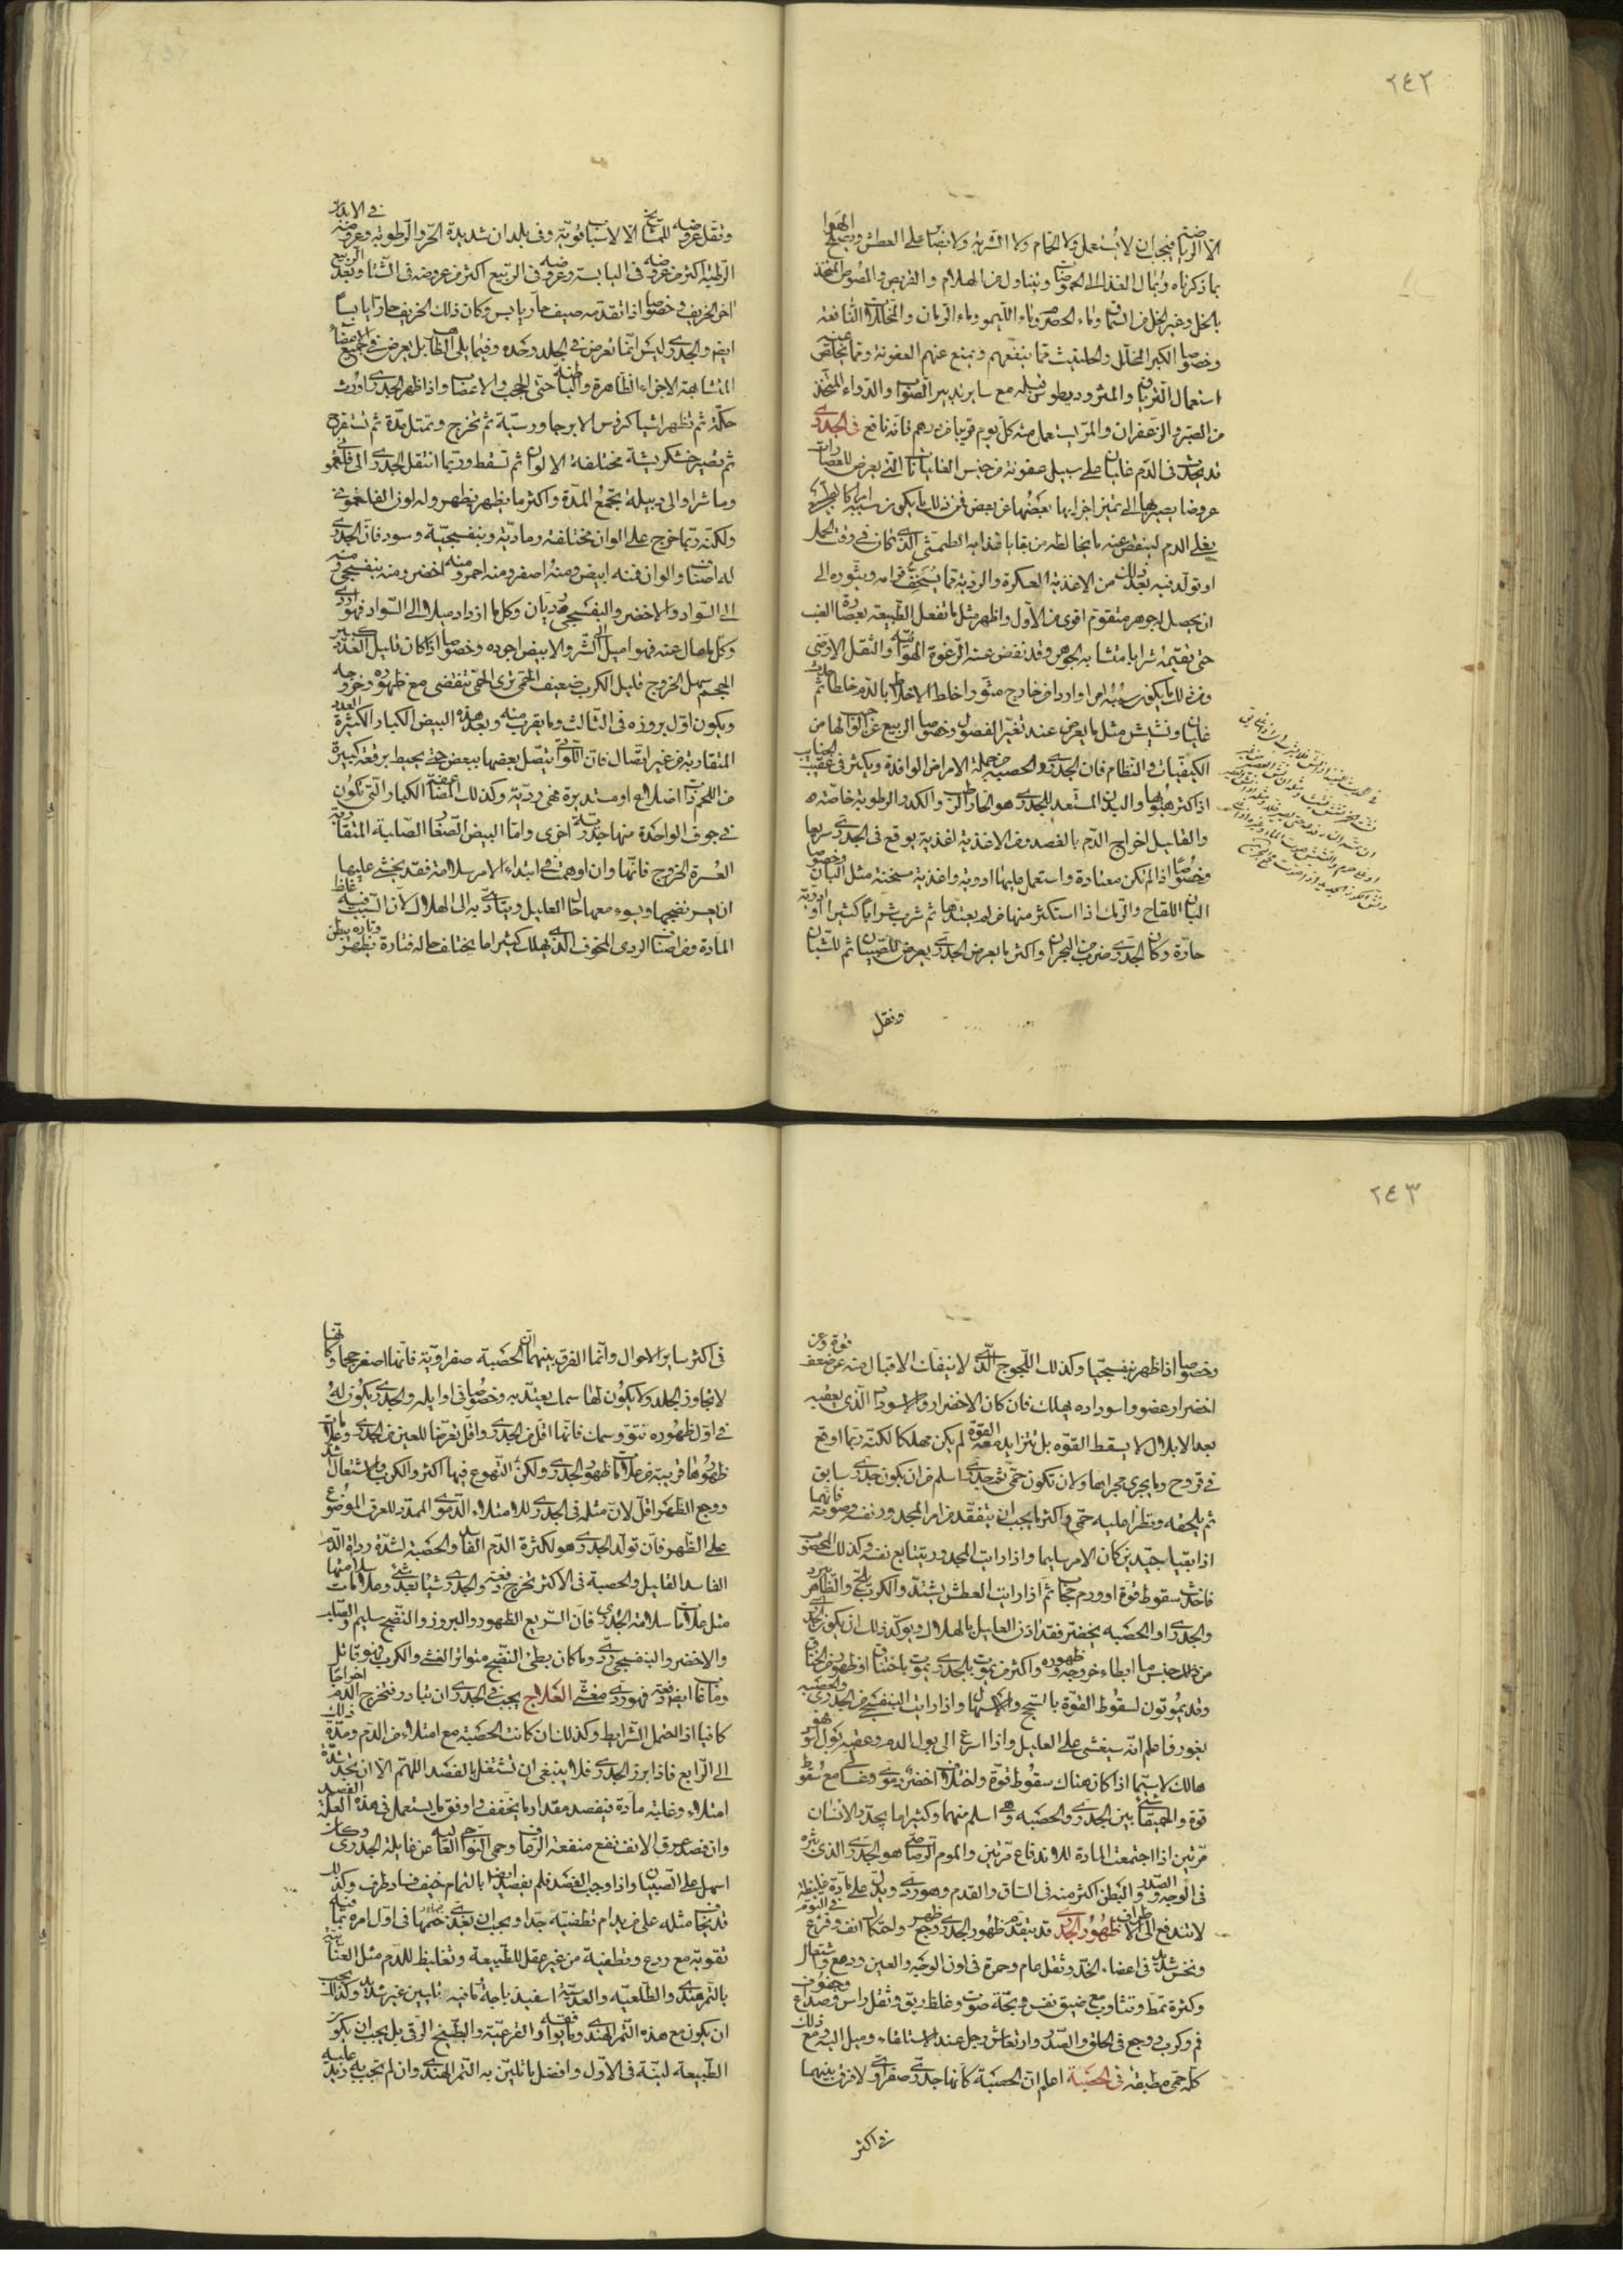 ٢٤٢
الهوا
الا الرياضة فيجب ان لا يستعمل ولا الحمام ولا الشربة ولا يصبّا على العطش ويصلح
بما ذكرناه ويمال الغذا الى الحموضات ويتناول من الهلام والقريص والمصوص المتخذ
بالخل وغير الخل من السماق وماء الحصرم وماء الليمو وماء الرمان والمخللات النافعة
وخصوصا الكبر المخلل والحلتيت مما ينفعهم ويمنع عنهم العفونة ومما يخلص عنه
استعمال الترياق والمثروديطوس قبله مع ساير تدبير الصواب والدواء المتخذ
من الصبر والزعفران والمر يستعمل منه كل يوم قريبا من درهم فانه نافع في الجدرى
قد يحدث فى الدم غليان على سبيل عفونة من جنس الغليانات التى يعرض للعصارات
عروضا يصير بها الى تميز اجزايها بعضها عن بعض فمن ذلك ما يكون سببه امرا كالطبيعى
يغلى الدم لينفض عنه ما يخالطه من بقايا غذايه الطمثى الذى كان فى وقت الحمل
او تولد فيه بعد ذلك من الاغذية العكرة والردية مما يسخف قوامه ويثوره الى
ان يحصل له جوهر متقوم اقوى من الاول واظهر مثل ما تفعل الطبيعة بعصارة العنب
حتى تقيمه شرابا متشابه الجوهر وقد نفض عنه الرغوة الهوائية والثقل الارضى
ومن ذلك ما يكون سببه امرا واردا من خارج مثورا خالط الاخلاط بالدم خلطا ثم
غليانا ونشيش مثل ما يعرض عند تغير الفصول وخصوصا الربيع عن الواجب لها من
الكيفيات والنظام فان الجدرى والحصبة من جملة الامراض الوافدة ويكثر فى عقيب الجنايب
اذا كثر هبوبها والبدن المستعد للجدرى هو الحار الرطب والكدر الرطوبة خاصة
والقليل اخراج الدم بالفصد ومن الاغذية اغذية يوقع فى الجدرى سريعا
وخصوصا اذا لم تكن معتادة واستعمل عليها ادوية واغذية مسخنة مثل البان وخصوصا
البان اللقاح والرماك اذا استكثر منها من لم يعتدها ثم شرب شرابا كثيرا او ادوية
حارة وكان الجدرى ضرب من البحران واكثر ما يعرض الجدرى يعرض للصبيان ثم للشبان
ونقل
فى الابدان
ونقل عروضه للمشايخ الا لاسباب قوية وفى بلدان شديدة الحر والرطوبة وعروضه
الرطبة اكثر من عروضه فى اليابسة وعروضه فى الربيع اكثر من عروضه فى الشتا وبعد الربيع
اخر الخريف وخصوصا اذا تقدمه صيف حار يابس وكان ذلك الخريف حارا يابسا
ايضا والجدرى وليس انما تعرض فى الجلد وحده وفيما يلى الظاهر بل يعرض فى جميع الاعضاء
المتشابهة الاجزاء الظاهرة والباطنة حتى الحجب والاعصاب واذا ظهر الجدرى اورث
حكة ثم تظهر اشيا كرؤس الابر جاورسية ثم تخرج وتمتلى مدة ثم تتقرح
ثم تصير خشكريشة مختلفة الالوان ثم تسقط وربما انتقل الجدرى الى فلغمونى
وماشرا والى دبيلة تجمع المدة واكثر ما يظهر يظهر وله لون الفلغمونى
ولكنه ربما خرج على الوان مختلفة رمادية وبنفسجية وسود فان الجدرى
له اصناف والوان فمنه ابيض ومنه اصفر ومنه احمر ومنه اخضر ومنه بنفسجى ومنه
الى السواد والاخضر والبنفسجى رديان وكل ما ازداد ميلا الى السواد فهو اردى
وكل ما مال عنه فهو اميل الى الشر والابيض اجوده وخصوصا اذا كان قليل العدد كبير
الحجم سهل الخروج قليل الكرب ضعيف الحمى ترى الحمى تنقضى مع ظهوره وخروجه
ويكون اول بروزه فى الثالث وما يقرب منه وبعد هذه البيض الكبار الكثيرة العدد
المتقاربة من غير اتصال فان اللواتى يتصل بعضها ببعض حتى يحيط برقعة كبيرة
من اللحم ذات اضلاع او مستديرة فهى ردية وكذلك المضاعفة الكبار التى تكون
فى جوف الواحدة منها جدرية اخرى واما البيض الصغار الصلبة المتقاربة
العسرة الخروج فانها وان اوهمت فى ابتداء الامر سلامة فقد يخشى عليها
ان يعسر نضجها ويسوء معها حال العليل ويتادى به الى الهلاك لان السبب فيه غلظ
المادة ومن اصناف الردى المخوف الذى يهلك كثيرا ما يختلف حاله فتارة يظهر وتارة يبطن
٢٤٣
قوة وعن
وخصوصا اذا ظهر بنفسجيا وكذلك اللجوج الذى لا ينفك الاقبال منه عن ضعف
اخضرار عضو واسوداده يهلك فان كان الاخضرار والاسوداد الذى يعقبه
بعد الابلال لا يسقط القوة بل تتزايد معه القوة لم يكن مهلكا لكنه ربما اوقع
فى قروح وما يجرى مجراها ولان تكون حمى ثم جدرى اسلم من ان يكون جدرى سابق
ثم يلحقه وتطرا عليه حمى واكثر ما يجب ان يتفقد من امر المجدور نفسه وصوته فانهما
اذا بقيا جيدين كان الامر سليما واذا رايت المجدور يتتابع نفسه وكذلك المحصوب
فاحدس سقوط قوة او ورم حجاب ثم اذا رايت العطش يشتد والكرب يلح والظاهر يبرد
والجدرى او الحصبة يخضر فقد اذن العليل بالهلاك ويوكد ذلك ان يكون الجدرى
من ذلك جنس ما ابطاء خروجه وظهوره واكثر من يموت بالجدرى يموت باختناق او ظهور من الخناق
وقد يموتون لسقوط القوة بالسحج والاسهال واذا رايت البنفسجى من الجدرى والحصبة
يغور فاعلم انه سيغشى على العليل واذا اسرع الى بول الدم وعقبه بول اسود هو
هالك لا سيما اذا كان هناك سقوط قوة واختلاف اخضر دموى وغسالى مع سقوط
قوة والحميقا شئ بين الجدرى والحصبة وهى اسلم منهما وكثيرا ما يجدر الانسان
مرتين اذا اجتمعت المادة للاندفاع مرتين والموم الرصاصى هو الجدرى والذى بثره
فى الوجه والصدر والبطن اكثر منه فى الساق والقدم وهو ردى ويدل على مادة غليظة
لا تندفع الى الاطراف ظهور الجدرى قد يتقدم ظهور الجدرى وجع ظهر واحتكاك انف وفزع فى النوم
ونخس شديد فى اعضاء الخد وثقل عام وحمرة فى لون الوجه والعين ودمع واشتعال
وكثرة تمط وتثاوب مع ضيق نفس وبحة صوت وغلظ ريق وثقل راس وصداع وجفوف
فم وكرب ووجع فى الحلق والصدر وارتعاش رجل عند الاستلقاء وميل اليه ومع ذلك
كله حمى مطبقة فى الحصبة اعلم ان الحصبة كانها جدرى صفراوى لا فرق بينهما
فى اكثر
فى اكثر ساير الاحوال وانما الفرق بينهما ان الحصبة صفراوية فانها اصغر حجما وكانها
لا تجاوز الجلد ولا يكون لها سمك يعتد به وخصوصا فى اوايله والجدرى يكون له
فى اول ظهوره نتو وسمك فانها اقل من الجدرى واقل تعرضا للعين من الجدرى وعلامات
ظهورها قريبة من علامات ظهور الجدرى ولكن التهوع فيها اكثر والكرب والاشتعال اشد
ووجع الظهر اقل لان مثله فى الجدرى للامتلاء الدموى الممدد للعرق الموضوع
على الظهر فان تولد الجدرى هو لكثرة الدم الفاسد والحصبة لشدة رداءة الدم
الفاسد القليل والحصبة فى الاكثر تخرج دفعة والجدرى شيئا بعد شئ وعلامات سلامتها
مثل علامات سلامة الجدرى فان السريع الظهور والبروز والنضج سليم والصلب
والاخضر والبنفسجى ردى وما كان بطئ النضج متواتر الغشى والكرب فهو قاتل
وما غاب ايضا دفعة فهو ردى مغشى العلاج يجب فى الجدرى ان تبادر فتخرج الدم اخراجا
كافيا اذا احتمل الشرايط وكذلك ان كانت الحصبة مع امتلاء من الدم ومدة ذلك
الى الرابع فاذا برز الجدرى فلا ينبغى ان تشتغل بالفصد اللهم الا ان تجد شدة
امتلاء وغلبة مادة فيفصد مقدار ما يخفف واوفق ما يستعمل فى هذه العلة الفصد
وان فصد عرق الانف نفع منفعة الرعاف وحمى النواحى العالية من غايلة الجدرى وكان
اسهل على الصبيان واذا وجب الفصد فلم يفصد ايضا بالتمام خيف فساد طرف وكذلك
قد يخاف مثله على من يدام تطفيته جدا ويجب ان يغذى فى اول امره بما فيه
تقوية مع ردع وتطفية من غير عقل للطبيعة وتغليظ للدم مثل العناب
بالتمر هندى والطلعية والعدسية اسفيدباجة ما فيه تليين غير شديد وكذلك يجب
ان يكون مع هذه التمر الهندى وما يوافقه والقرعية والبطيخ الرقى بل يجب ان يكون
الطبيعة لينة فى الاول وافضل ما تلين به التمر الهندى وان لم تجب به زيد عليه